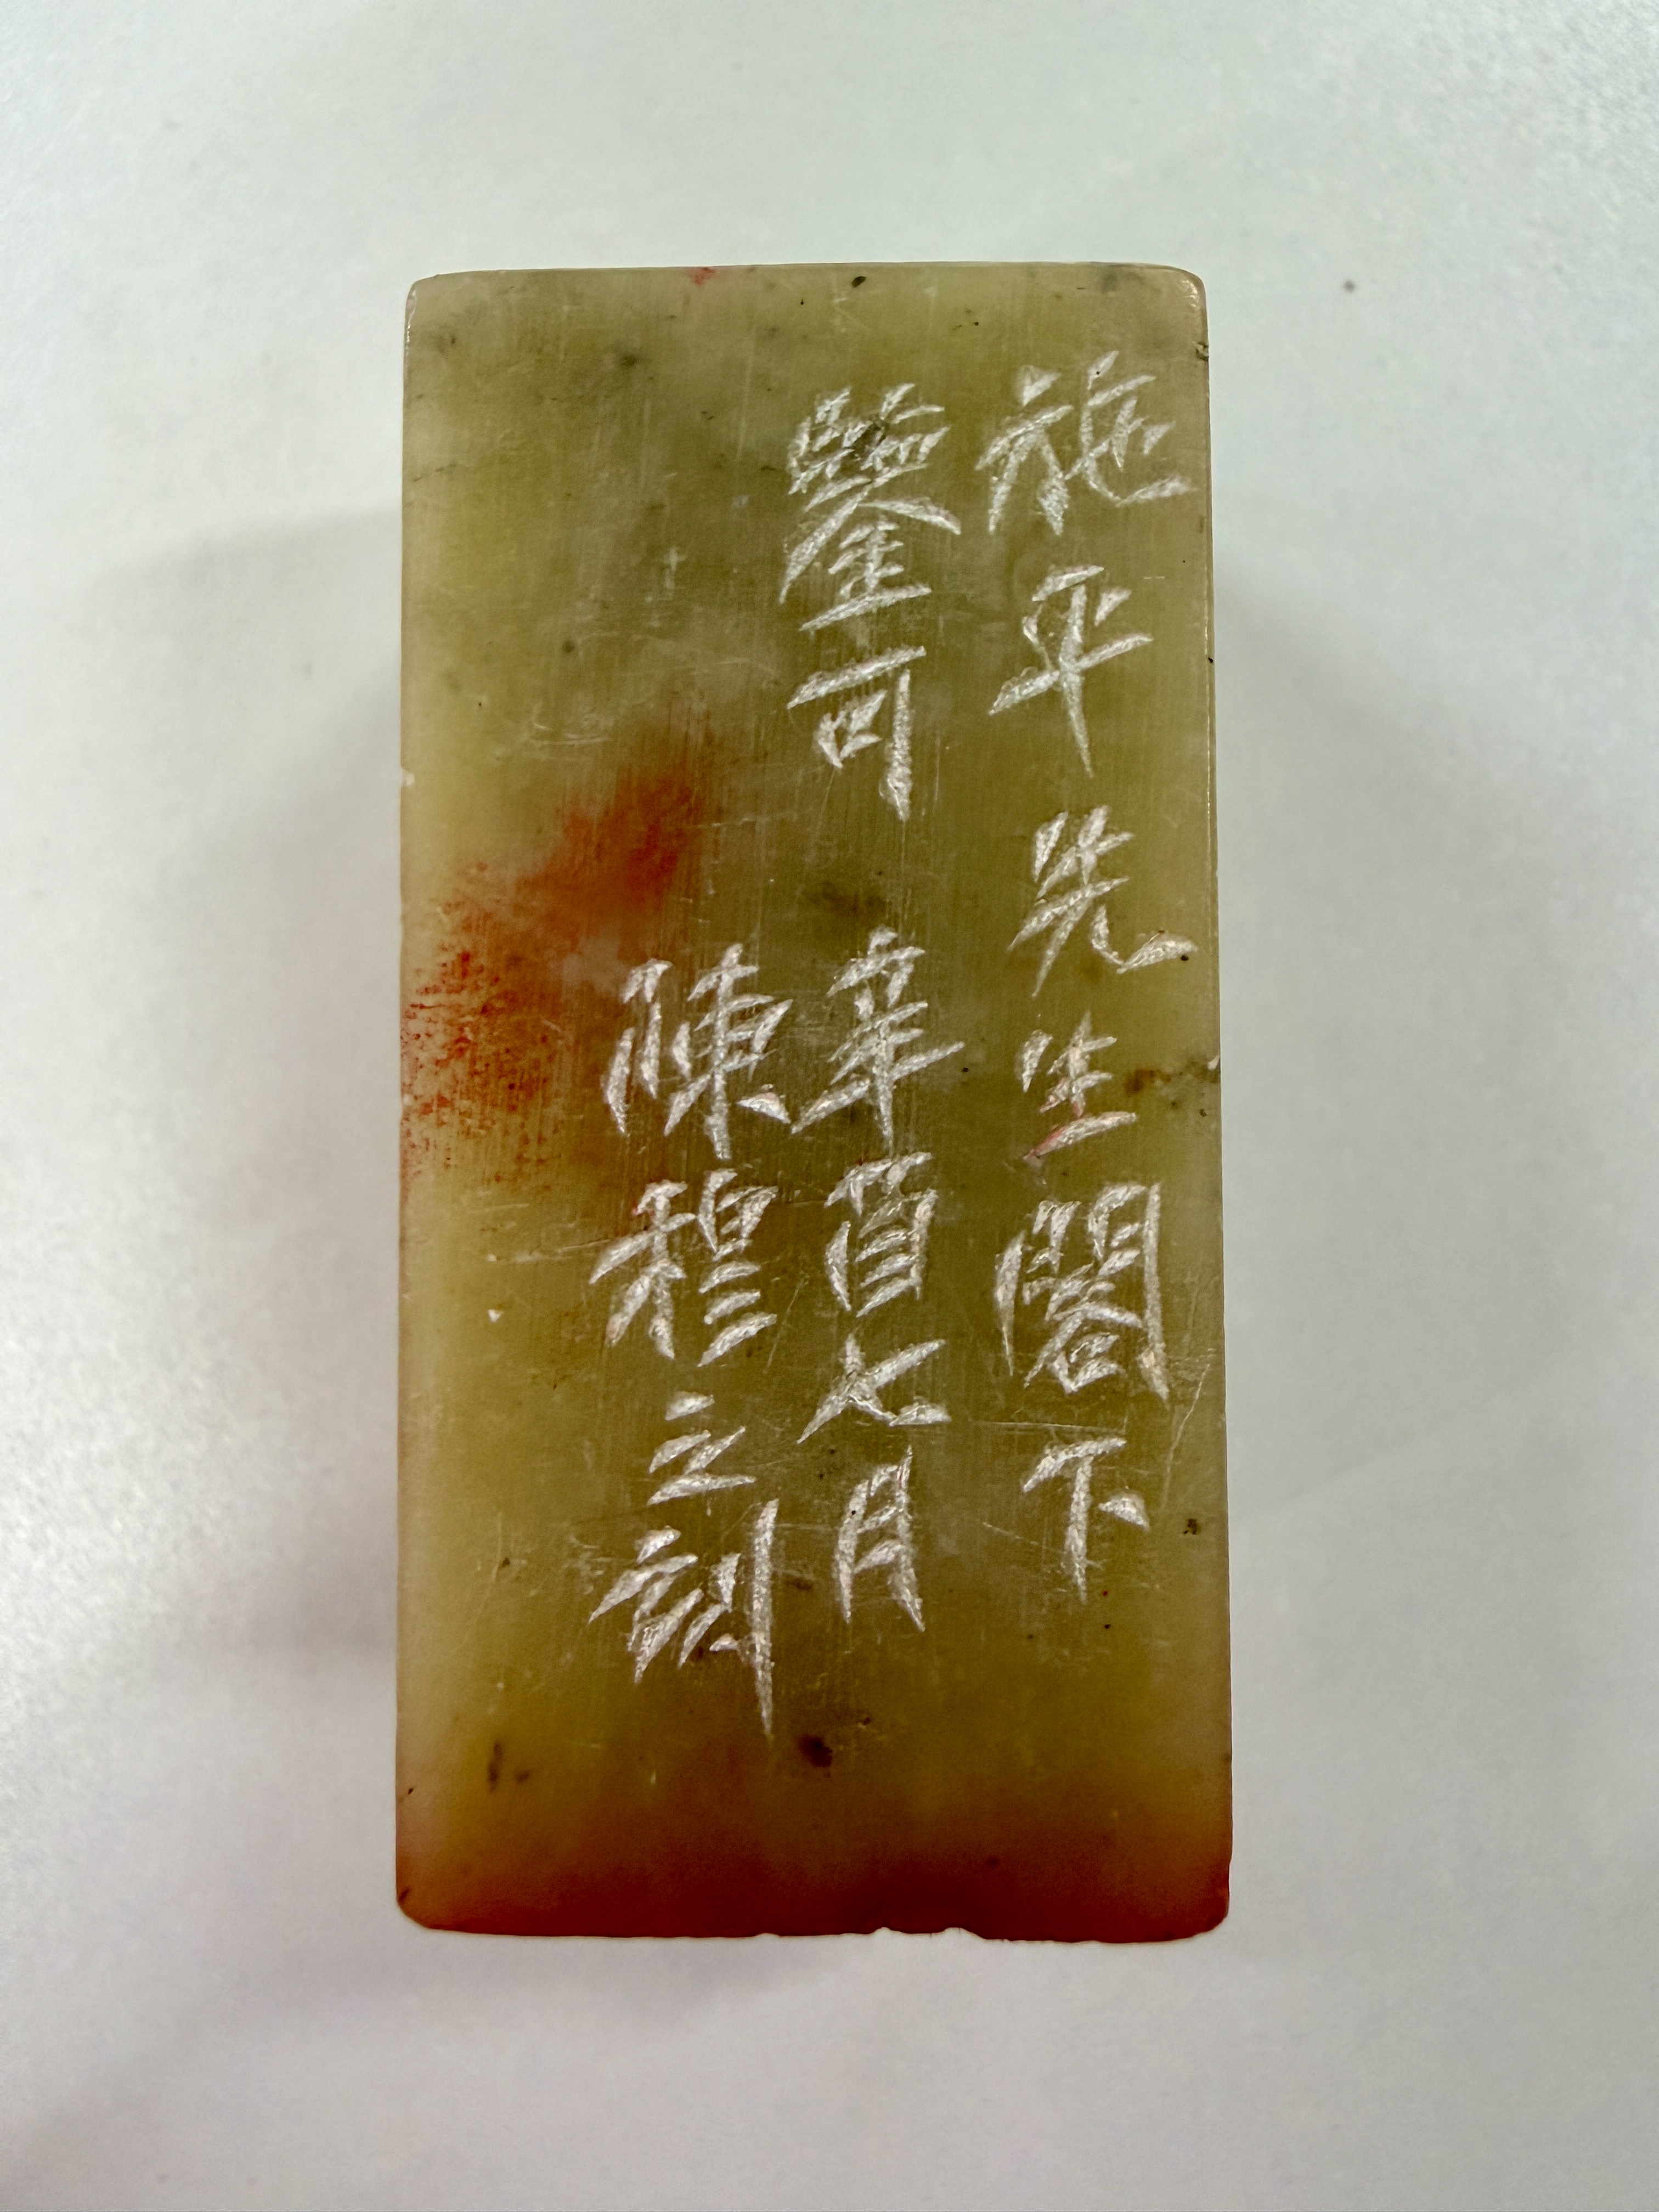 施平先生閣下
鑒可 辛酉七月
陳穆之刻